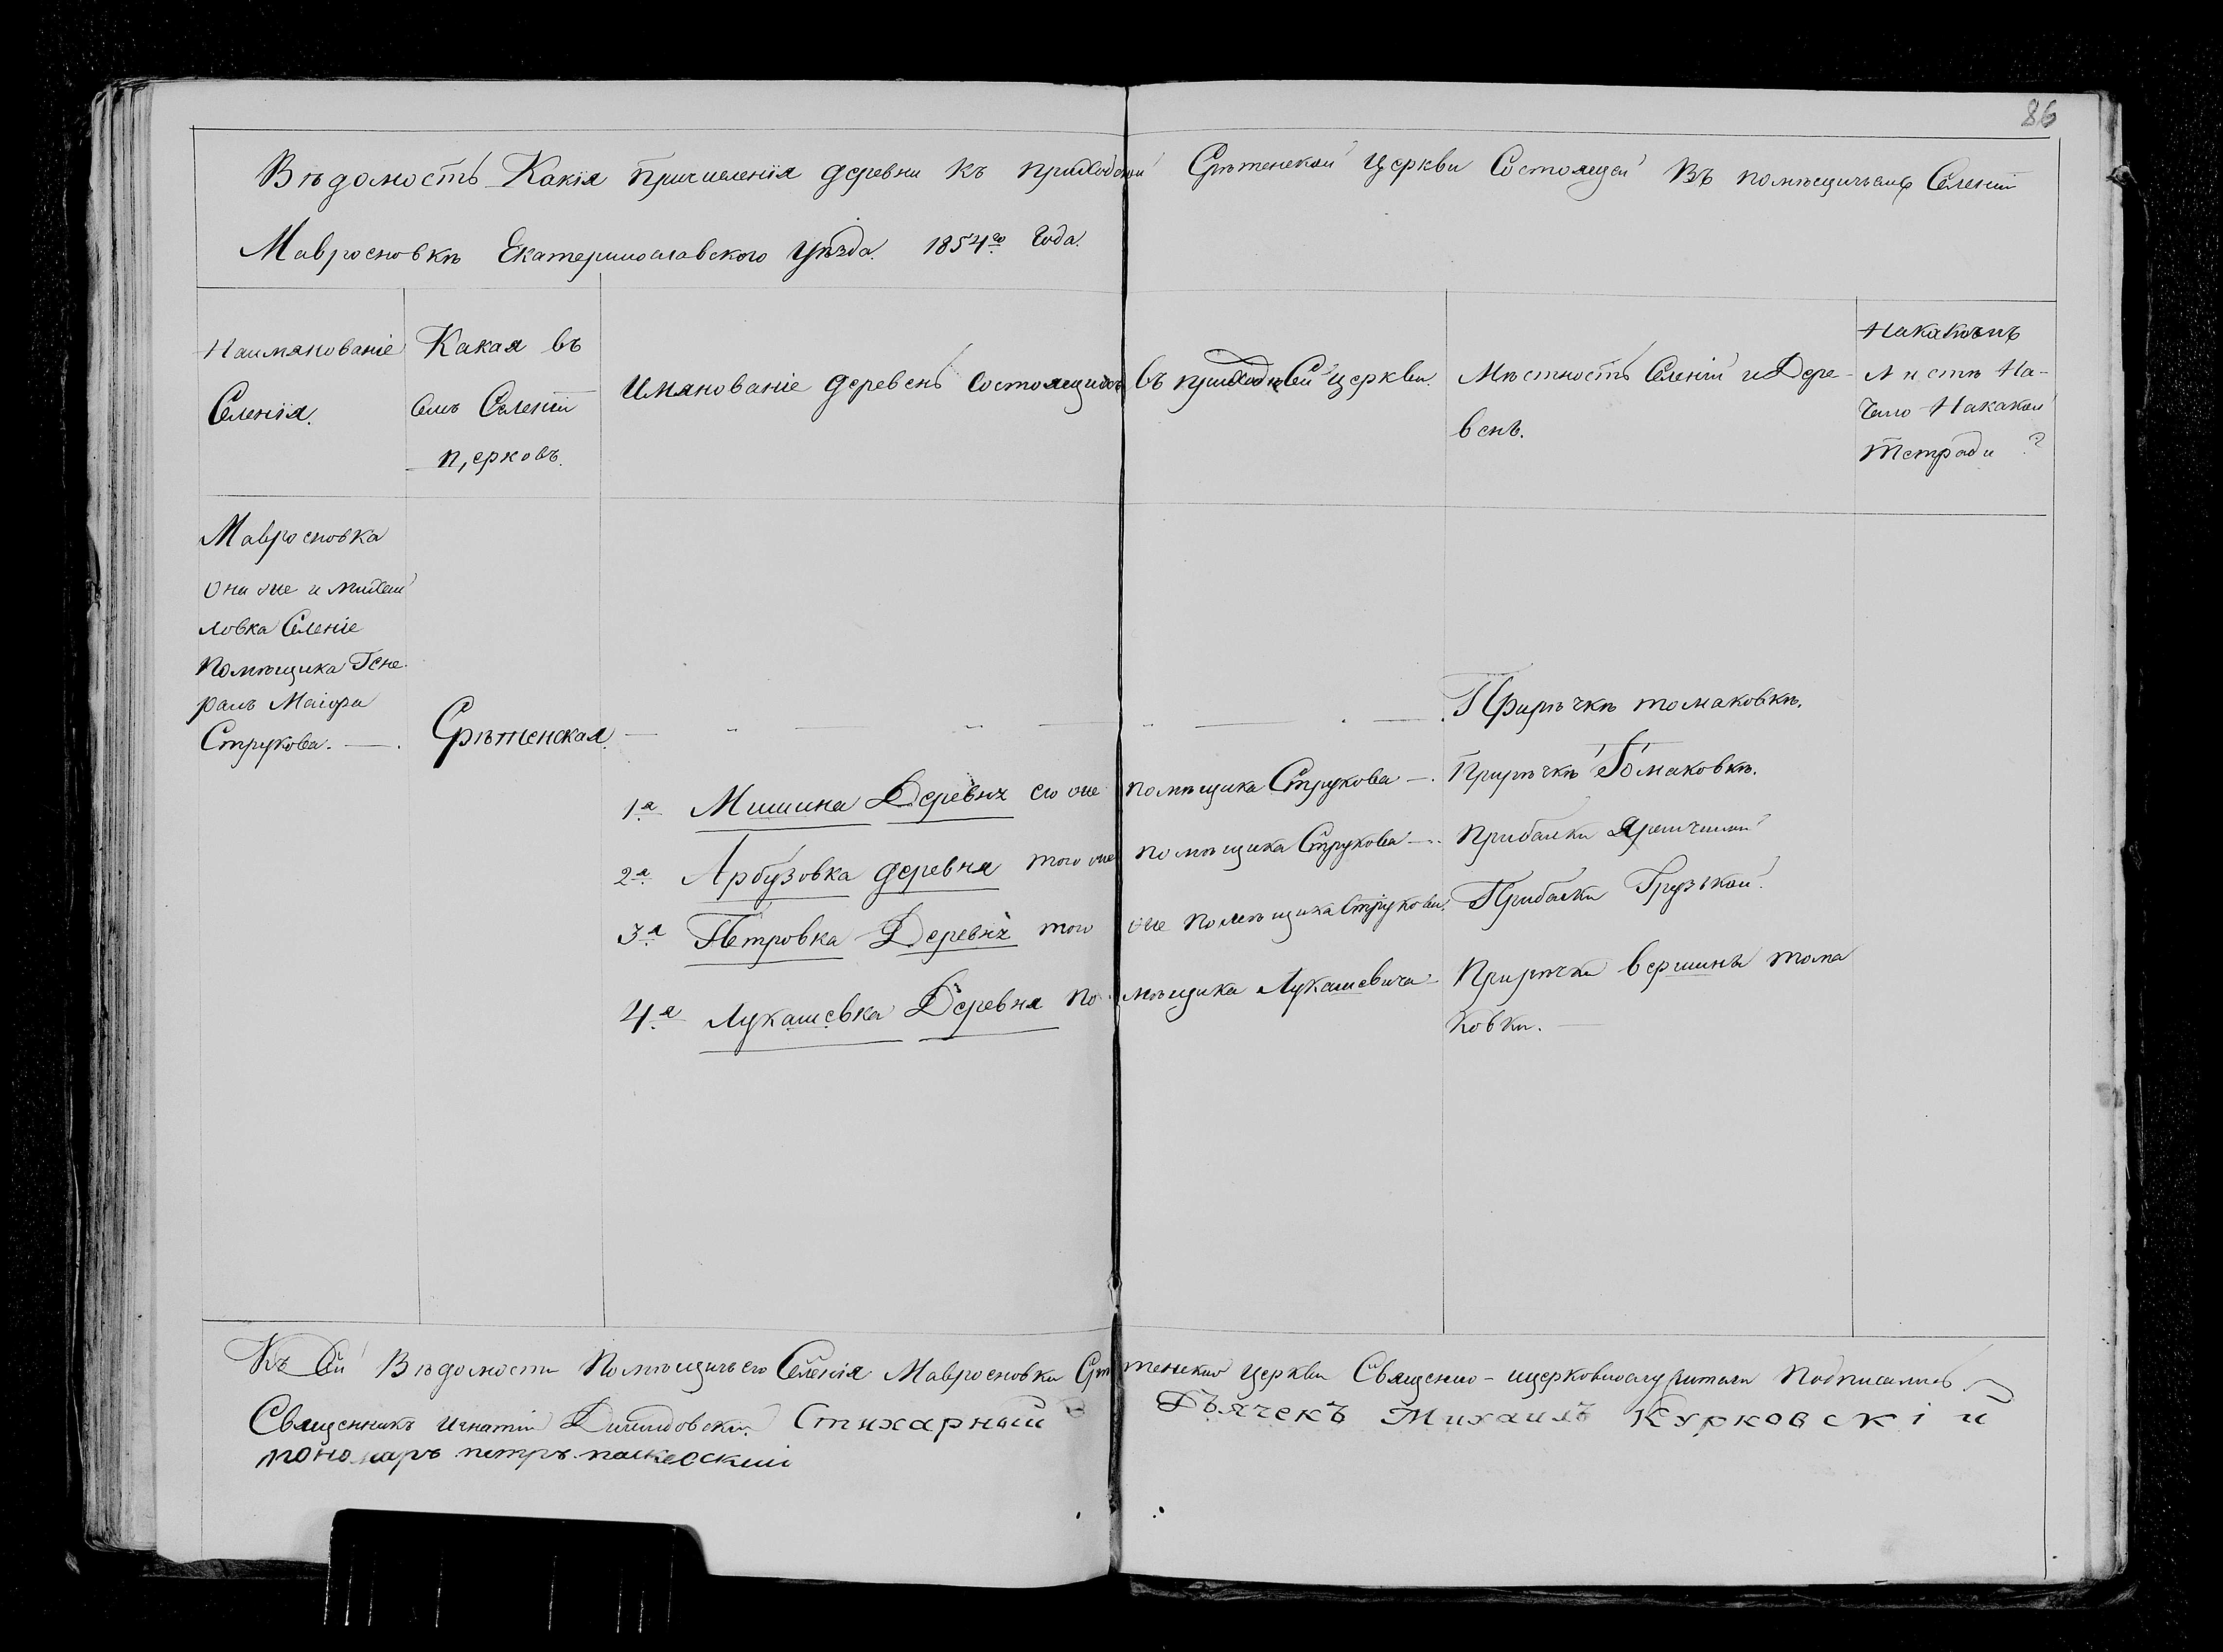 86
Вѣдомость Какія причисленія деревни къ приходской Срѣтенской Церкви Состоящей Въ помѣщичьемъ Селеніи
Мавросновкѣ Екатеринославского Уѣзда. 1854го Года.
Наимянованіе
Селенія.
Какая въ
семъ Селеніи
церковь.
Имянованіе деревень состоящихъ въ приходѣ Сей церкви.
Мѣстность Селеній и Дере-
вень.
На какомъ
листѣ На-
чало На какой
тетради ?
Мавросновка
она же и михай
ловка Селеніе
Помѣщика Гене
ралъ Маіора
Струкова. —.
Срѣтенская.
При рѣчкѣ томаковкѣ.
1я Мишина Деревня его же помѣщика Струкова —. При рѣчкѣ Томаковкѣ.
2я Арбузовка деревня того же помѣщика Струкова —. При балки
3я Петровка Деревня того же помѣщика Струкова. При балки Грузькой.
4я Лукашевка Деревня помѣщика Лукашевича При рѣчки вершины тома
ковки. —
Къ Сей Вѣдомости Помѣщичьего Селенія Мавросновки Срѣтенской церкви Священно-ицерковнослужители Подписались
Священникъ Игнатій Стихарный Дьячекъ Михаилъ Курковскій
пономаръ петръ